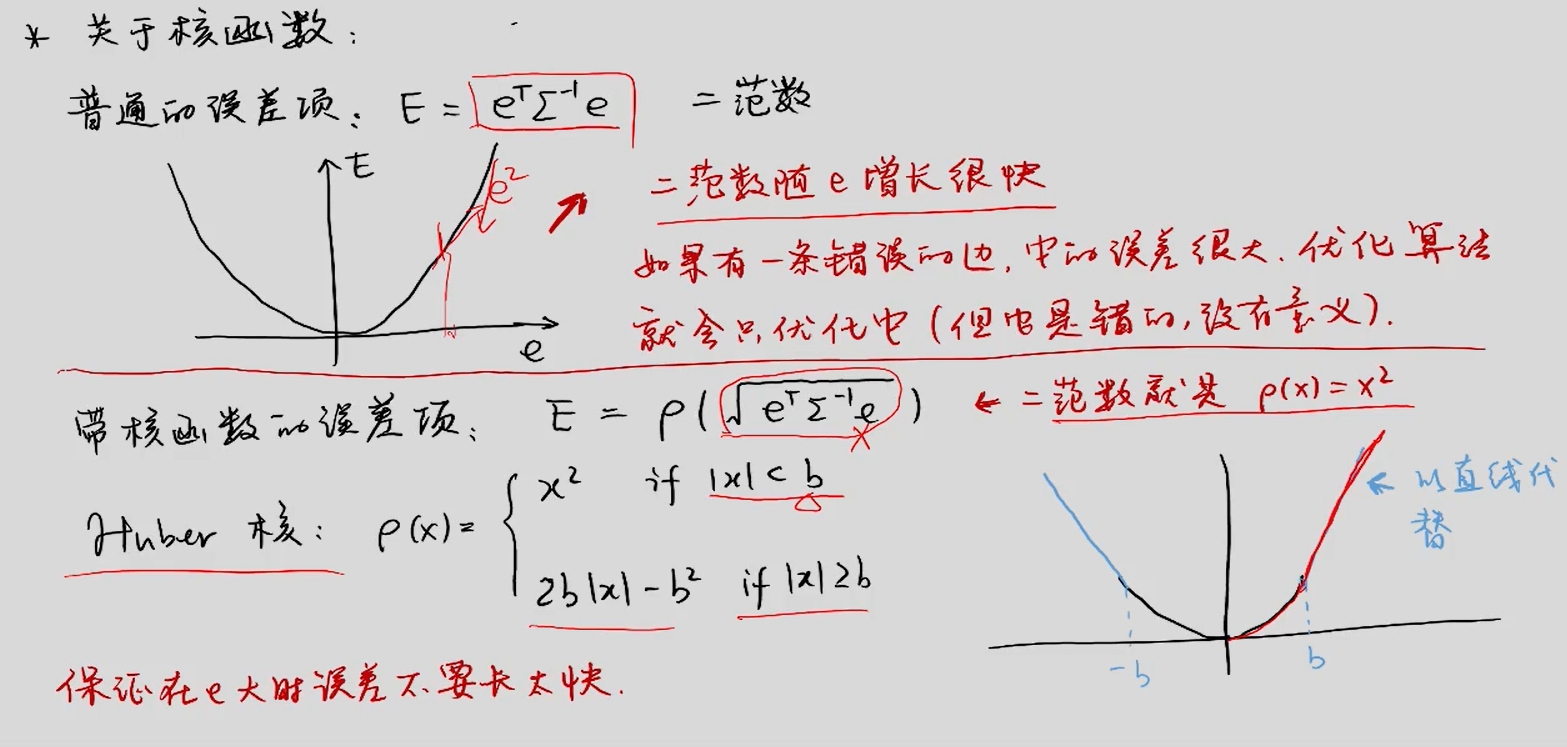 * 关于核函数:
普通的误差项: E = eᵀΣ⁻¹e 二范数
E
e²
e
二范数随e增长很快
如果有一条错误的边, 它的误差很大. 优化算法
就会只优化它 (但它是错的, 没有意义).
带核函数的误差项: E = ρ(√(eᵀΣ⁻¹e)) ← 二范数就是 ρ(x)=x²
x
Huber 核: ρ(x)= { x² if |x|<b
2b|x|-b² if |x|≥b
← 以直线代
替
-b b
保证在e大时误差不要长太快.